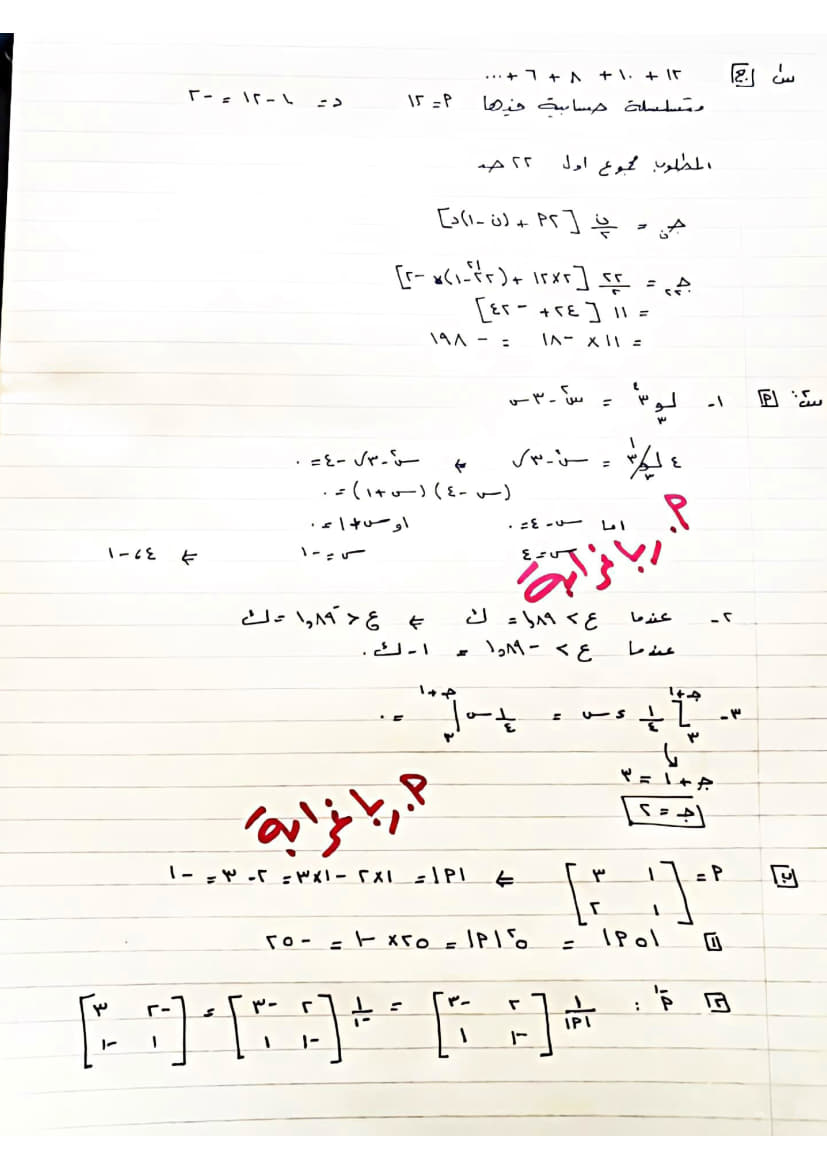 س١ ج ١٢ + ١٠ + ٨ + ٦ + ...
متسلسلة حسابية فيها م = ١٢ د = ١٠ - ١٢ = -٢
المطلوب مجموع اول ٢٢ حد
جـن = ن/٢ [٢م + (ن - ١)د]
جـ٢٢ = ٢٢/٢ [٢×١٢ + (٢٢ - ١)× -٢] ٢١
= ١١ [٢٤ + -٤٢]
= ١١ × -١٨ = -١٩٨
س٢: م ١- لو٣ ٣^٤ = س^٢ - ٣س
٤ لو٣ ٣ ١ = س^٢ - ٣س ⇐ س^٢ - ٣س - ٤ = ٠
(س - ٤)(س + ١) = ٠
اما س - ٤ = ٠ او س + ١ = ٠
س = ٤ س = -١ ⇐ ٤، -١
م. ربا غرابة
٢- عندما ع > ١,٨٩ = ك ⇐ ع < ١,٨٩ = ك
عندما ع > -١,٨٩ = ١ - ك.
٣- ∫٣^(جـ+١) ١/٤ ءس = ١/٤ س ]٣^(جـ+١) = ٠
جـ + ١ = ٣
جـ = ٢
م. ربا غرابة
ب م = [١ ٣ ١ ٢] ⇐ |م| = ١×٢ - ١×٣ = ٢ - ٣ = -١
١ |٥م| = ٥^٢|م| = ٢٥ × -١ = -٢٥
٢ م^-١ : ١/|م| [٢ -٣ -١ ١] = ١/-١ [٢ -٣ -١ ١] = [-٢ ٣ ١ -١]